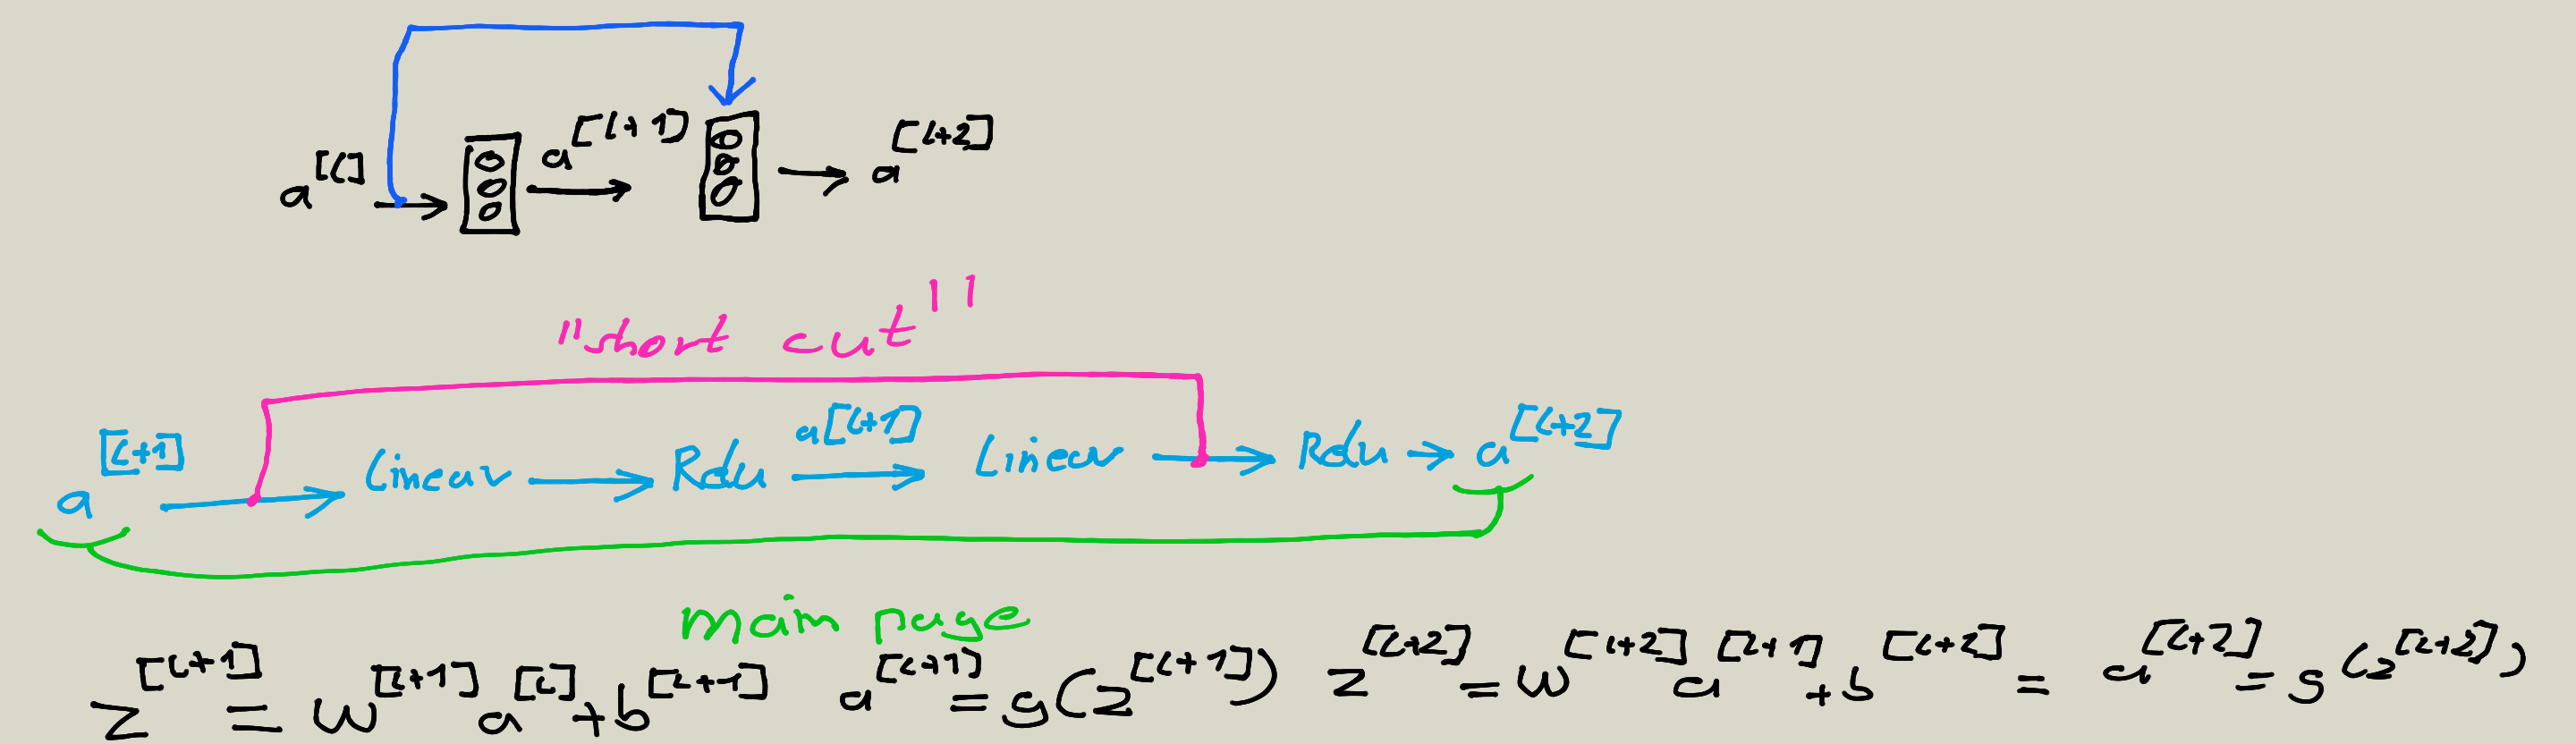 a^[l] a^[l+1] a^[l+2]
"short cut"
a^[l+1] Linear Relu a^[l+1] Linear Relu a^[l+2]
main page
z^[l+1] = w^[l+1] a^[l] + b^[l+1] a^[l+1] = g(z^[l+1]) z^[l+2] = w^[l+2] a^[l+1] + b^[l+2] = a^[l+2] = g(z^[l+2])